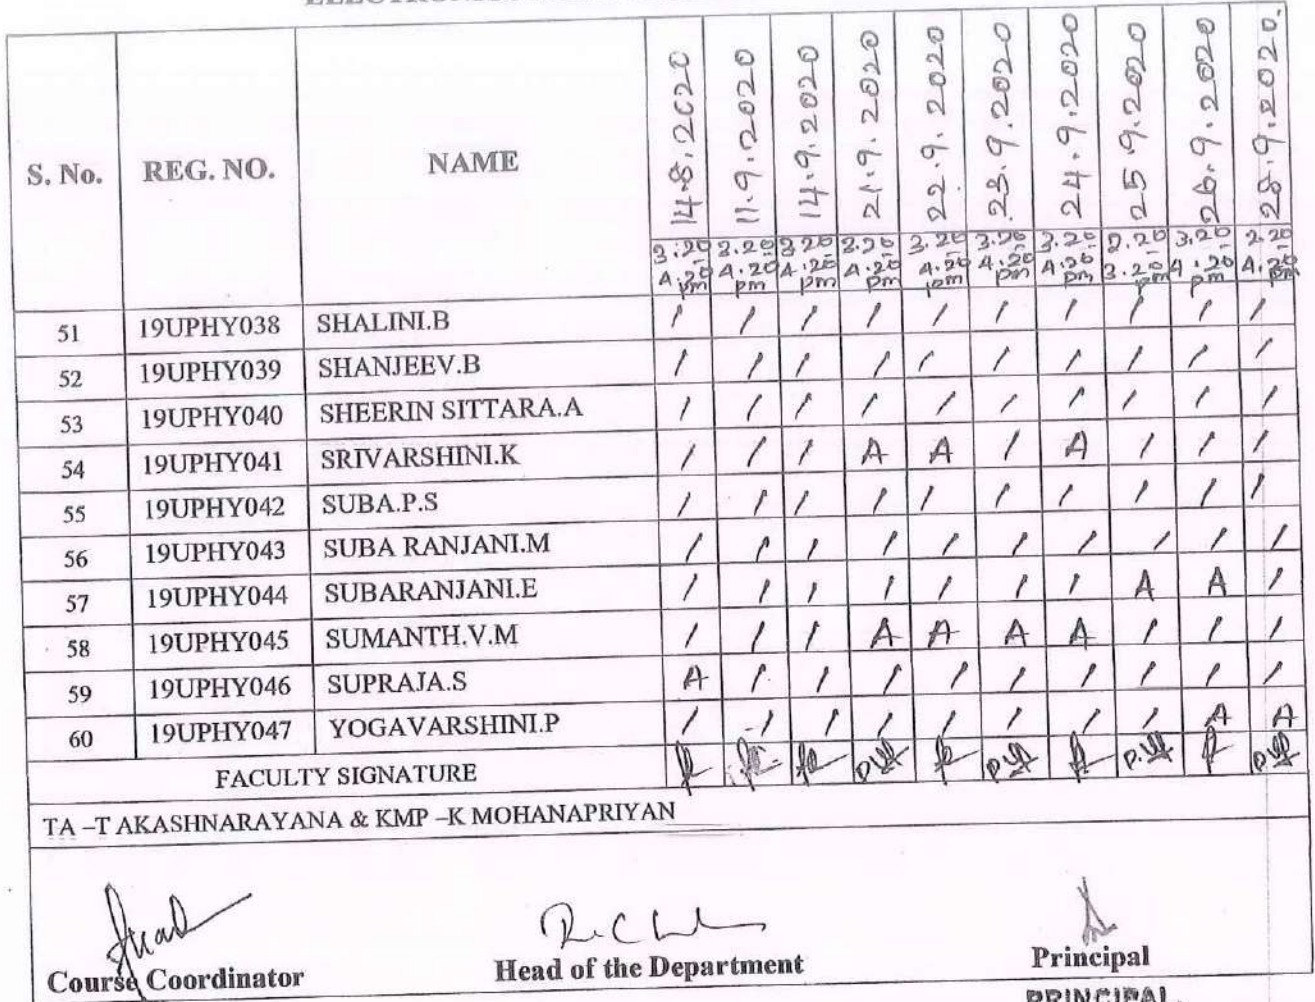 S. No. REG. NO. NAME 14.8.2020 11.9.2020 14.9.2020 21.9.2020 22.9.2020 23.9.2020 24.9.2020 25.9.2020 26.9.2020 28.9.2020.
3.20 3.20 3.20 3.20 3.20 3.20 3.20 2.20 3.20 2.20
- - - - - - - - - -
4.20 4.20 4.20 4.20 4.20 4.20 4.20 3.20 4.20 4.20
pm pm pm pm pm pm pm pm pm pm
51 19UPHY038 SHALINI.B / / / / / / / / / /
52 19UPHY039 SHANJEEV.B / / / / / / / / / /
53 19UPHY040 SHEERIN SITTARA.A / / / / / / / / / /
54 19UPHY041 SRIVARSHINI.K / / / A A / A / / /
55 19UPHY042 SUBA.P.S / / / / / / / / / /
56 19UPHY043 SUBA RANJANI.M / / / / / / / / / /
57 19UPHY044 SUBARANJANI.E / / / / / / / A A /
58 19UPHY045 SUMANTH.V.M / / / A A A A / / /
59 19UPHY046 SUPRAJA.S A / / / / / / / / /
60 19UPHY047 YOGAVARSHINI.P / / / / / / / / A A
FACULTY SIGNATURE
TA –T AKASHNARAYANA & KMP –K MOHANAPRIYAN
Course Coordinator Head of the Department Principal
PRINCIPAL